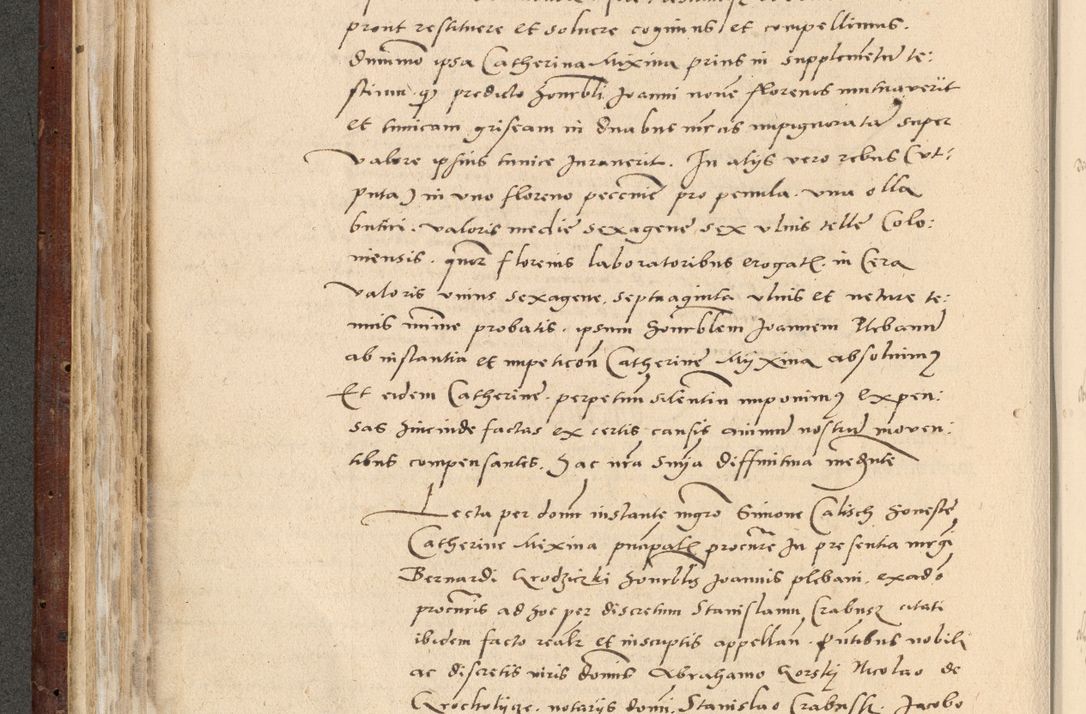 prout restituere et soluere cogimus et compellimus.
dummo ipsa Catherina Mixina prius in supplementum te:
stium q predicto honorbli Joanni nouem florenos mutuauerit
et tunicam griseam in duabus mrcis impignoratam super
valore ipsius tunice Jurauerit. In alijs vero rebus (vt:
puta) in vno floreno peccunie pro penula. vna olla
butiri. valoris medie sexagene sex vlnis telle Colo:
niensis. quor florenis laboratoribus erogatis. in Cera
valoris vnius sexagene, septuaginta vlnis et neture te:
nuis minime probatis. ipsum honorblem Joannem Plebanum
ab instantia et impeticon Catherine Mixina absoluimus
Et eidem Catherine. perpetuum silentium imponimus expen:
sas hincinde factas ex certis causis animum nostrum mouen:
tibus compensantes. Hac nra snia diffinitiua mediante
Lecta per domi instante mgro Simone Calisch honeste
Catherine Mixina principalis procure In presentia mrgi
Bernardi Grodziczki honorblis Joannis plebani. ex ado
procuris ad hoc per discretum Stanislaum Crabusz citati
ibidem facto realr et inscriptis appellan. Pntibus nobili
ac discretis viris domi Abrahamo Gorsky Nicolao de
notarijs domi. Stanislao Crabusk. Jacobo